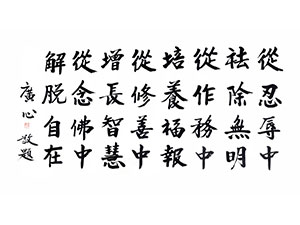 從忍辱中
祛除無明
從作務中
培養福報
從修善中
增長智慧
從念佛中
解脫自在
廣心敬題